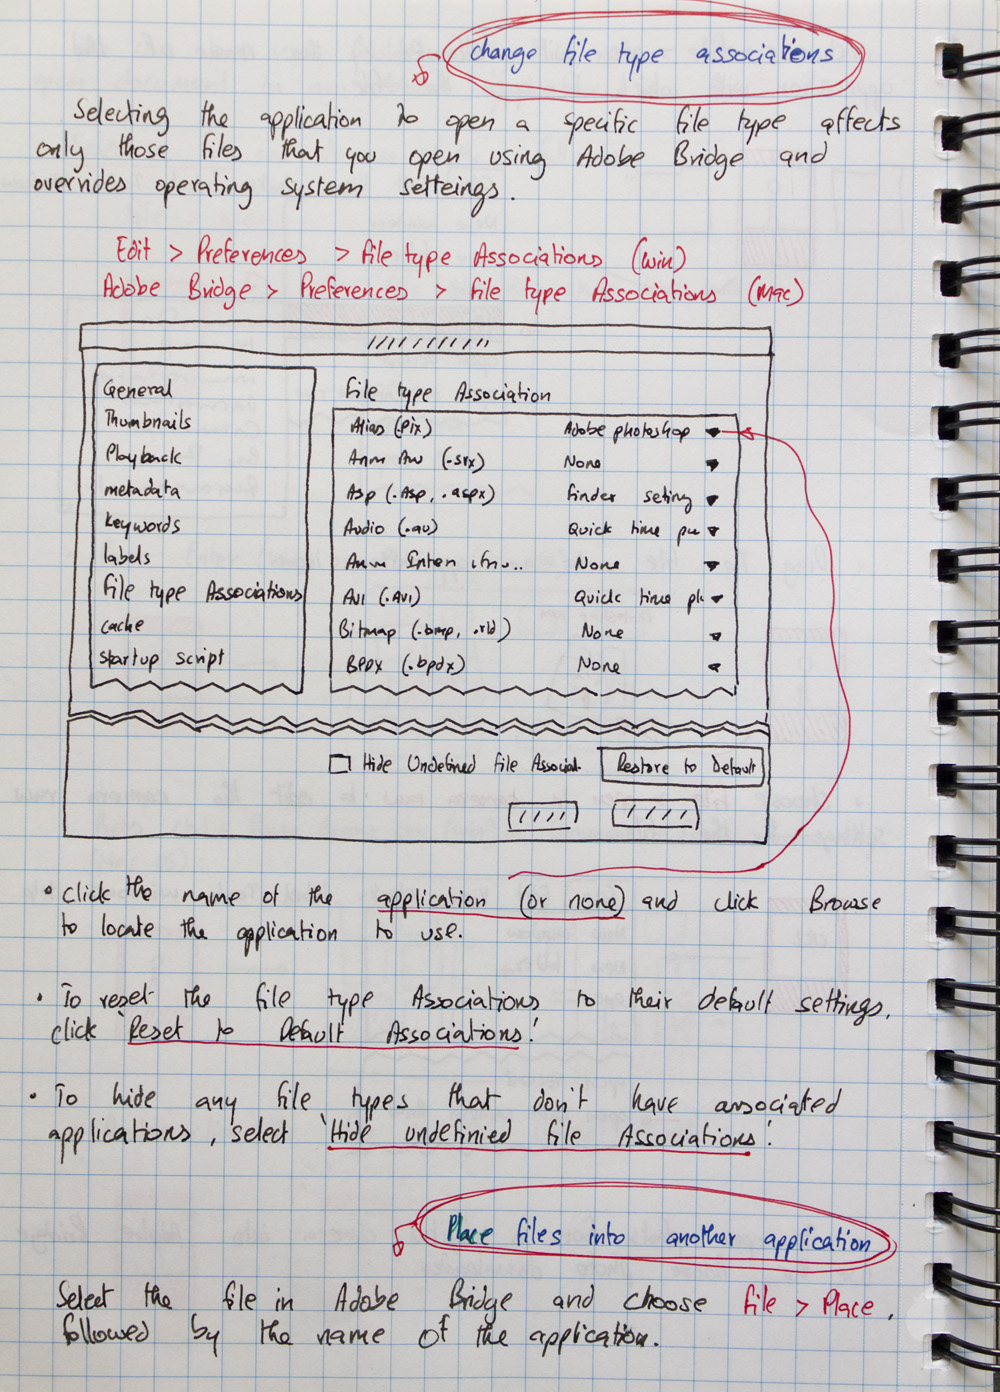 change file type associations
Selecting the application to open a specific file type affects
only those files that you open using Adobe Bridge and
overrides operating system setteings.
Edit > Preferences > File type Associations (win)
Adobe Bridge > Preferences > File type Associations (Mac)
General
Thumbnails
Playback
metadata
keywords
labels
File type Associations
cache
startup script
File type Association
Alias (.pix) Adobe photoshop
Anm Aw (.srx) None
Asp (.Asp, .aspx) Finder seting
Audio (.au) Quick time
None
AVI (.AVI) Quick time
Bitmap (.bmp, .rld) None
BPDX (.bpdx) None
Hide Undefined File Associat. Restore to Default
• click the name of the application (or none) and click Browse
to locate the application to use.
• To reset the file type Associations to their default settings,
click 'Reset to Default Associations'.
• To hide any file types that don't have associated
applications, select 'Hide undefinied file Associations'.
Place files into another application
Select the file in Adobe Bridge and choose File > Place,
followed by the name of the application.